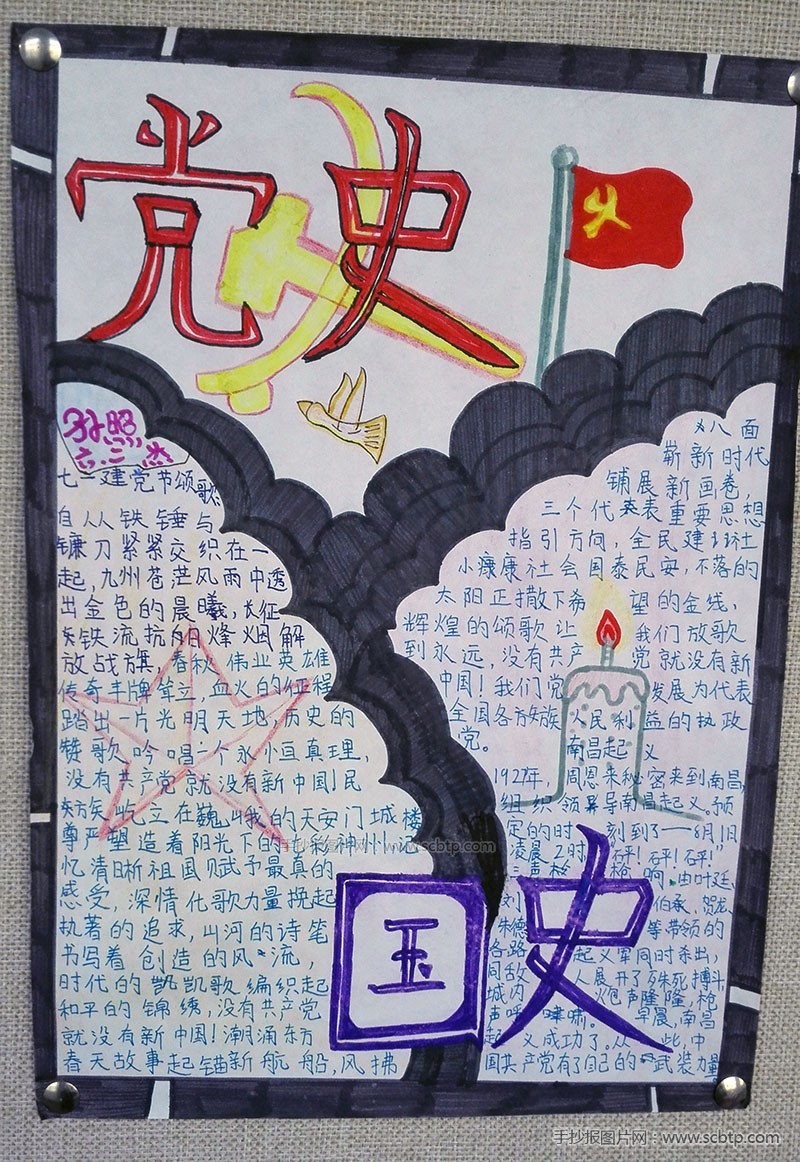 党史
孙照杰
六.二
七一建党节颂歌
自从铁锤与
镰刀紧紧交织在一
起,九州苍茫风雨中透
出金色的晨曦,长征
铁流抗日烽烟解
放战旗,春秋伟业英雄
传奇丰牌耸立,血火的征程
踏出一片光明天地,历史的
赞歌吟唱一个永恒真理,
没有共产党就没有新中国!民
族屹立在巍峨的天安门城楼
尊严塑造着阳光下的人彩神州!记
忆清晰祖国赋予最真的
感受,深情化歌力量挽起
执著的追求,山河的诗笔
书写着创造的风流,
时代的凯歌编织起
和平的锦绣,没有共产党
就没有新中国!潮涌东方
春天故事起锚新航船,风拂
八面
崭新时代
铺展新画卷,
三个代表重要思想
指引方向,全民建社
小康社会国泰民安,不落的
太阳正撒下希望的金线,
辉煌的颂歌让我们放歌
到永远,没有共产党就没有新
中国!我们党发展为代表
全国各族人民利益的执政
党。
南昌起义
1927年,周恩来秘密来到南昌,
组织领导南昌起义。预
定的时刻到了——8月1日
凌晨2时“砰!砰!砰!”
三声枪响,由叶廷、
刘伯承、贺龙、
朱德等带领的
各路起义军同时杀出,
同敌人展开了殊死搏斗,
城内炮声隆隆,枪
声呼啸。早晨,南昌
起义成功了。从此,中
国共产党有了自己的武装力量
国史
手抄报图片网:www.scbtp.com
手抄报图片网:www.scbtp.com